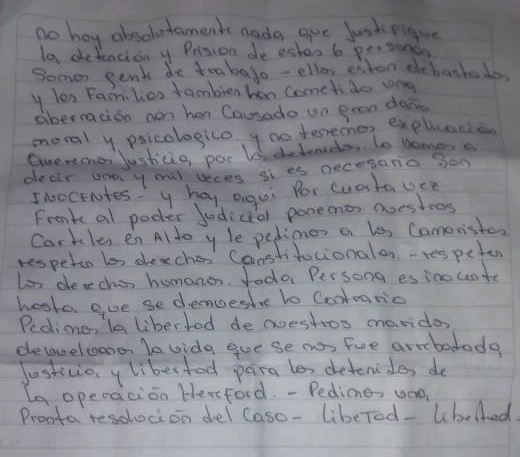 no hay absolutamente nada que Justifique
la detención y Prision de estas 6 personas.
Somos gente de trabajo - ellos estan debastados
y las Familias tambien han Cometido una
aberración nos han Causado un gran daño
moral y psicologico, y no tenemos explicación
Queremos Justicia, por los detenidos lo vamos a
decir una y mil veces si es necesario Son
INOCENTES - y hoy aqui Por cuarta vez
Frente al poder Judicial ponemos nuestros
Carteles en Alto y le pedimos a los Camaristas
respeten los derechos Constitucionales - respeten
los derechos humanos. toda Persona es inocente
hasta que se demuestre lo Contrario
Pedimos la libertad de nuestros maridos,
devuelvanos la vida que se nos fue arrebatada
Justicia y libertad para los detenidos de
la operación Hereford. - Pedimos una
Pronta resolución del Caso - liberTad - libertad -